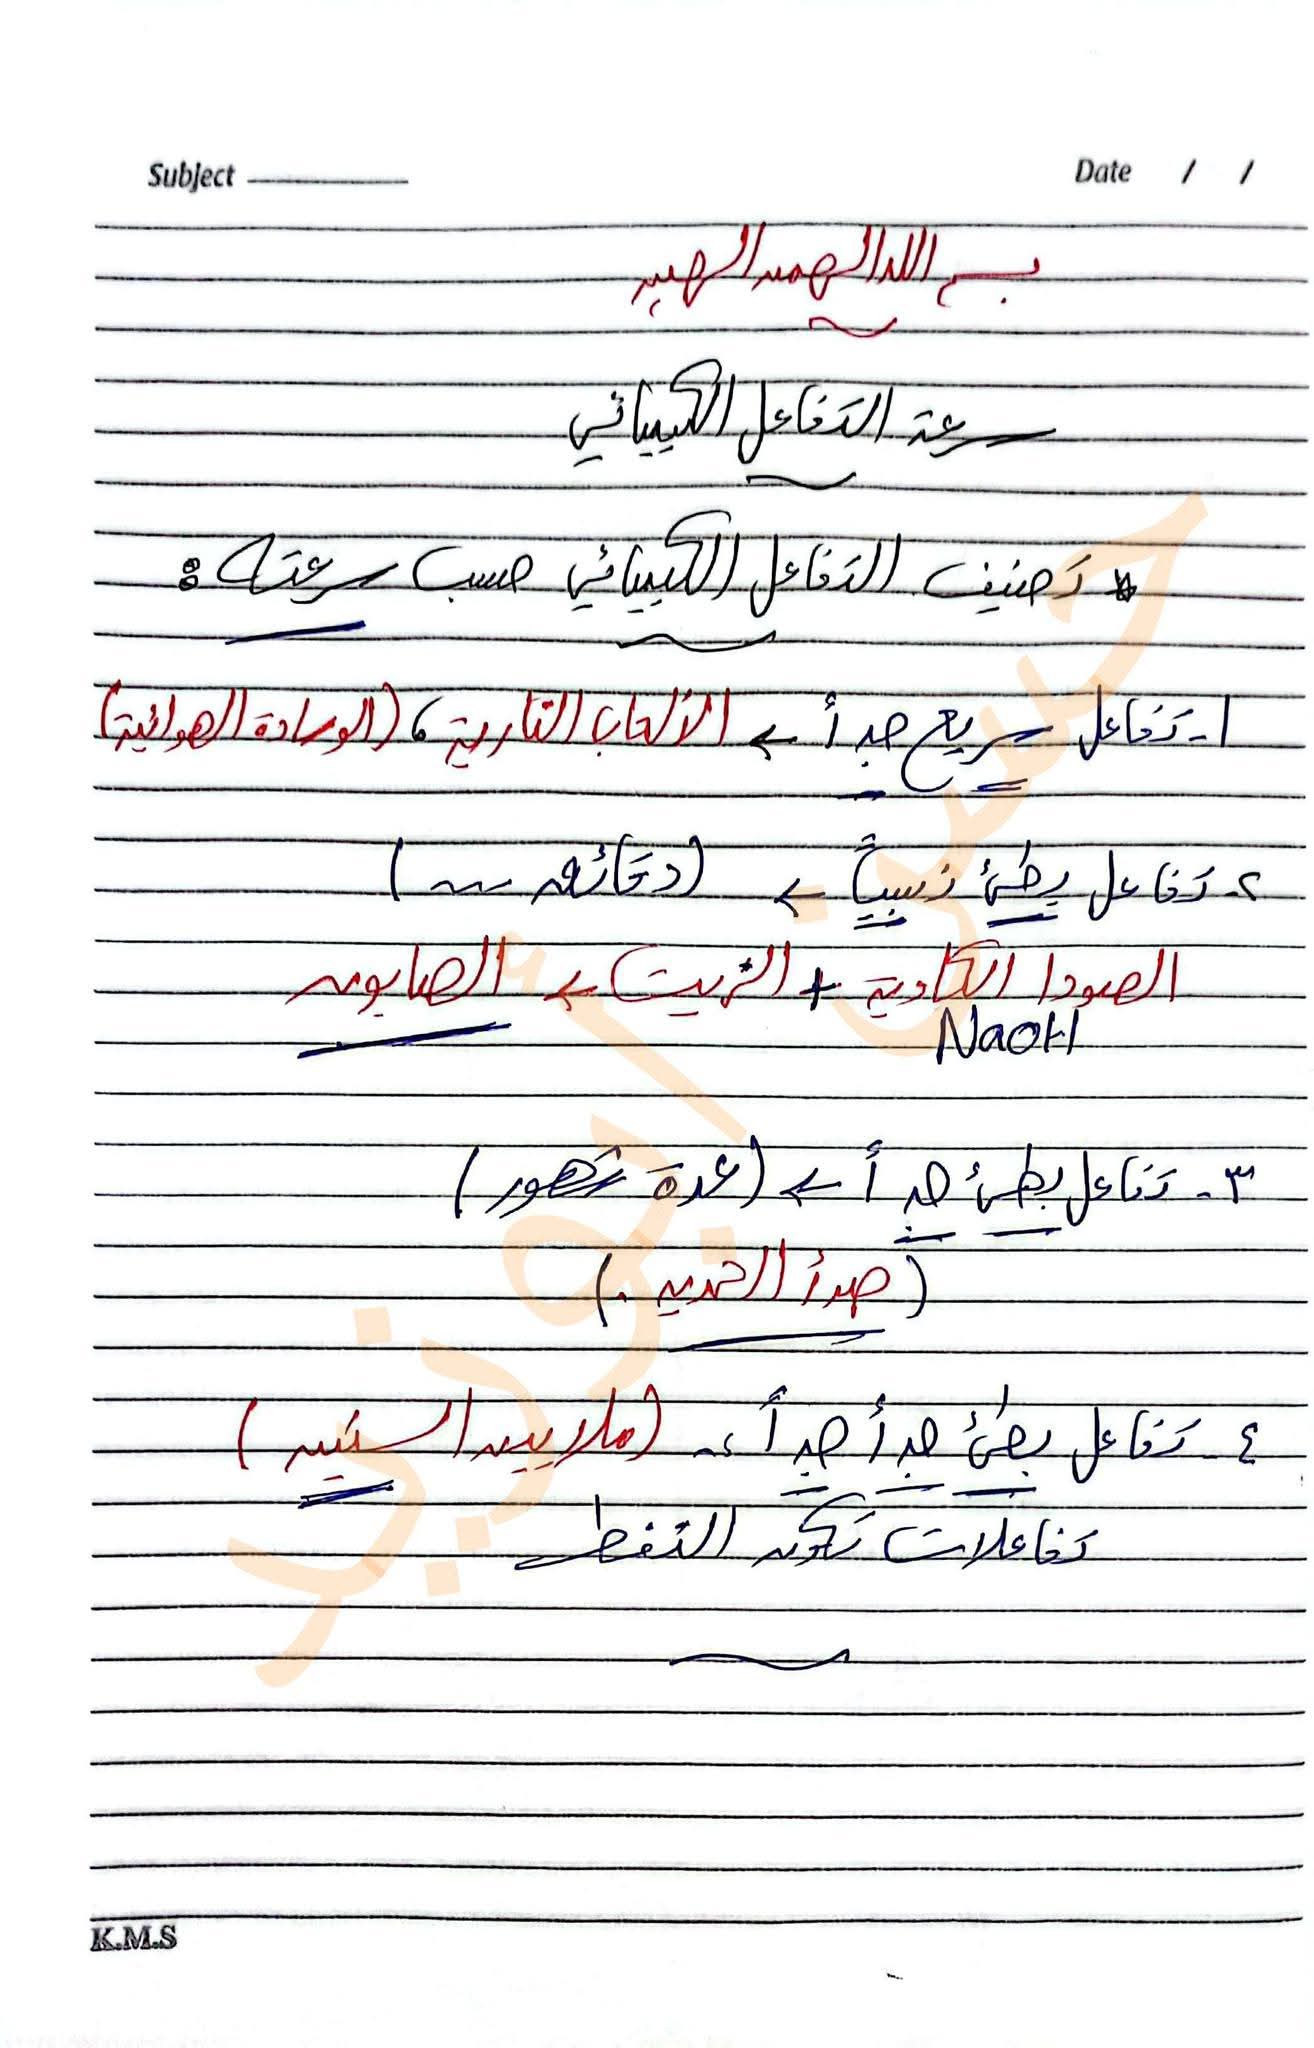 Subject Date / /
بسم الله الرحمن الرحيم
سرعة التفاعل الكيميائي
* تصنيف التفاعل الكيميائي حسب سرعته :
١- تفاعل سريع جداً ← الألعاب النارية ، (الوسادة الهوائية)
٢- تفاعل بطئ نسبياً ← (دقائق ...)
الصودا الكاوية + الزيت ← الصابون
NaOH
٣- تفاعل بطئ جداً ← (عدة شهور)
(صدأ الحديد.)
٤- تفاعل بطئ جداً جداً ← (ملايين السنين)
تفاعلات تكون النفط
حسن أبوزيد
K.M.S